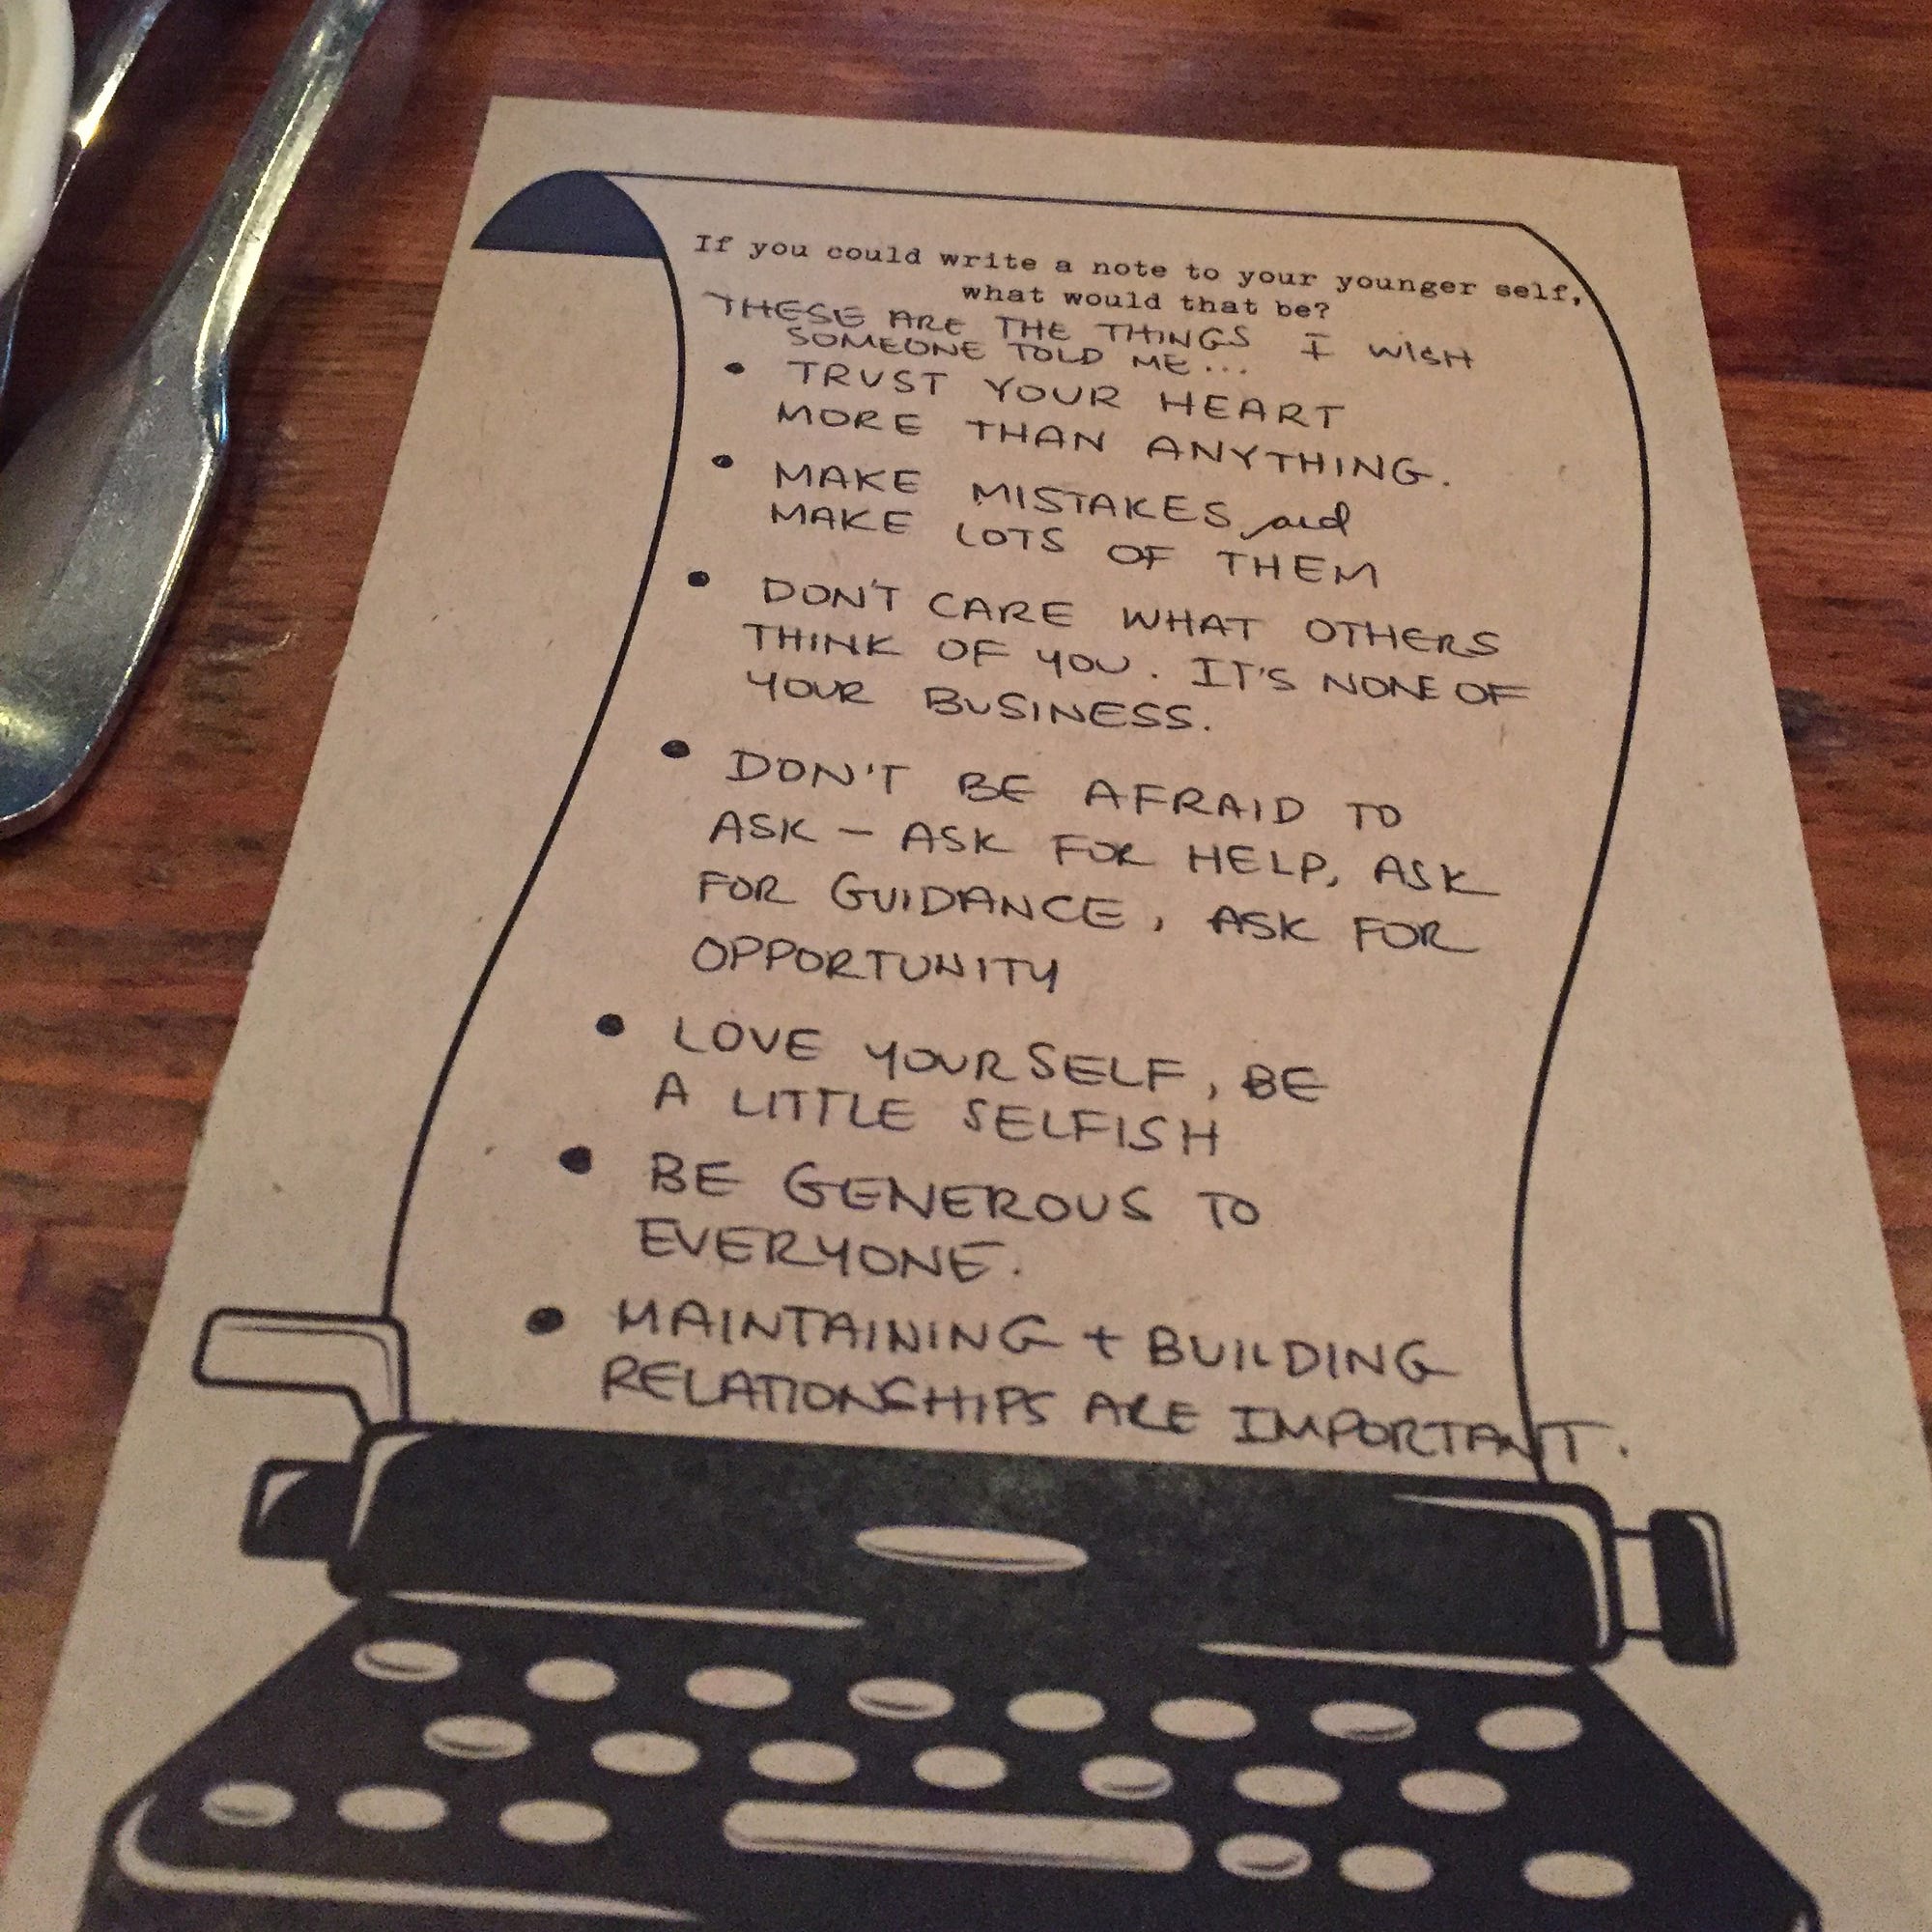 If you could write a note to your younger self,
what would that be?
THESE ARE THE THINGS I WISH
SOMEONE TOLD ME...
• TRUST YOUR HEART
MORE THAN ANYTHING.
• MAKE MISTAKES and
MAKE LOTS OF THEM
• DON'T CARE WHAT OTHERS
THINK OF YOU. IT'S NONE OF
YOUR BUSINESS.
• DON'T BE AFRAID TO
ASK - ASK FOR HELP, ASK
FOR GUIDANCE, ASK FOR
OPPORTUNITY
• LOVE YOURSELF, BE
A LITTLE SELFISH
• BE GENEROUS TO
EVERYONE.
• MAINTAINING + BUILDING
RELATIONSHIPS ARE IMPORTANT.